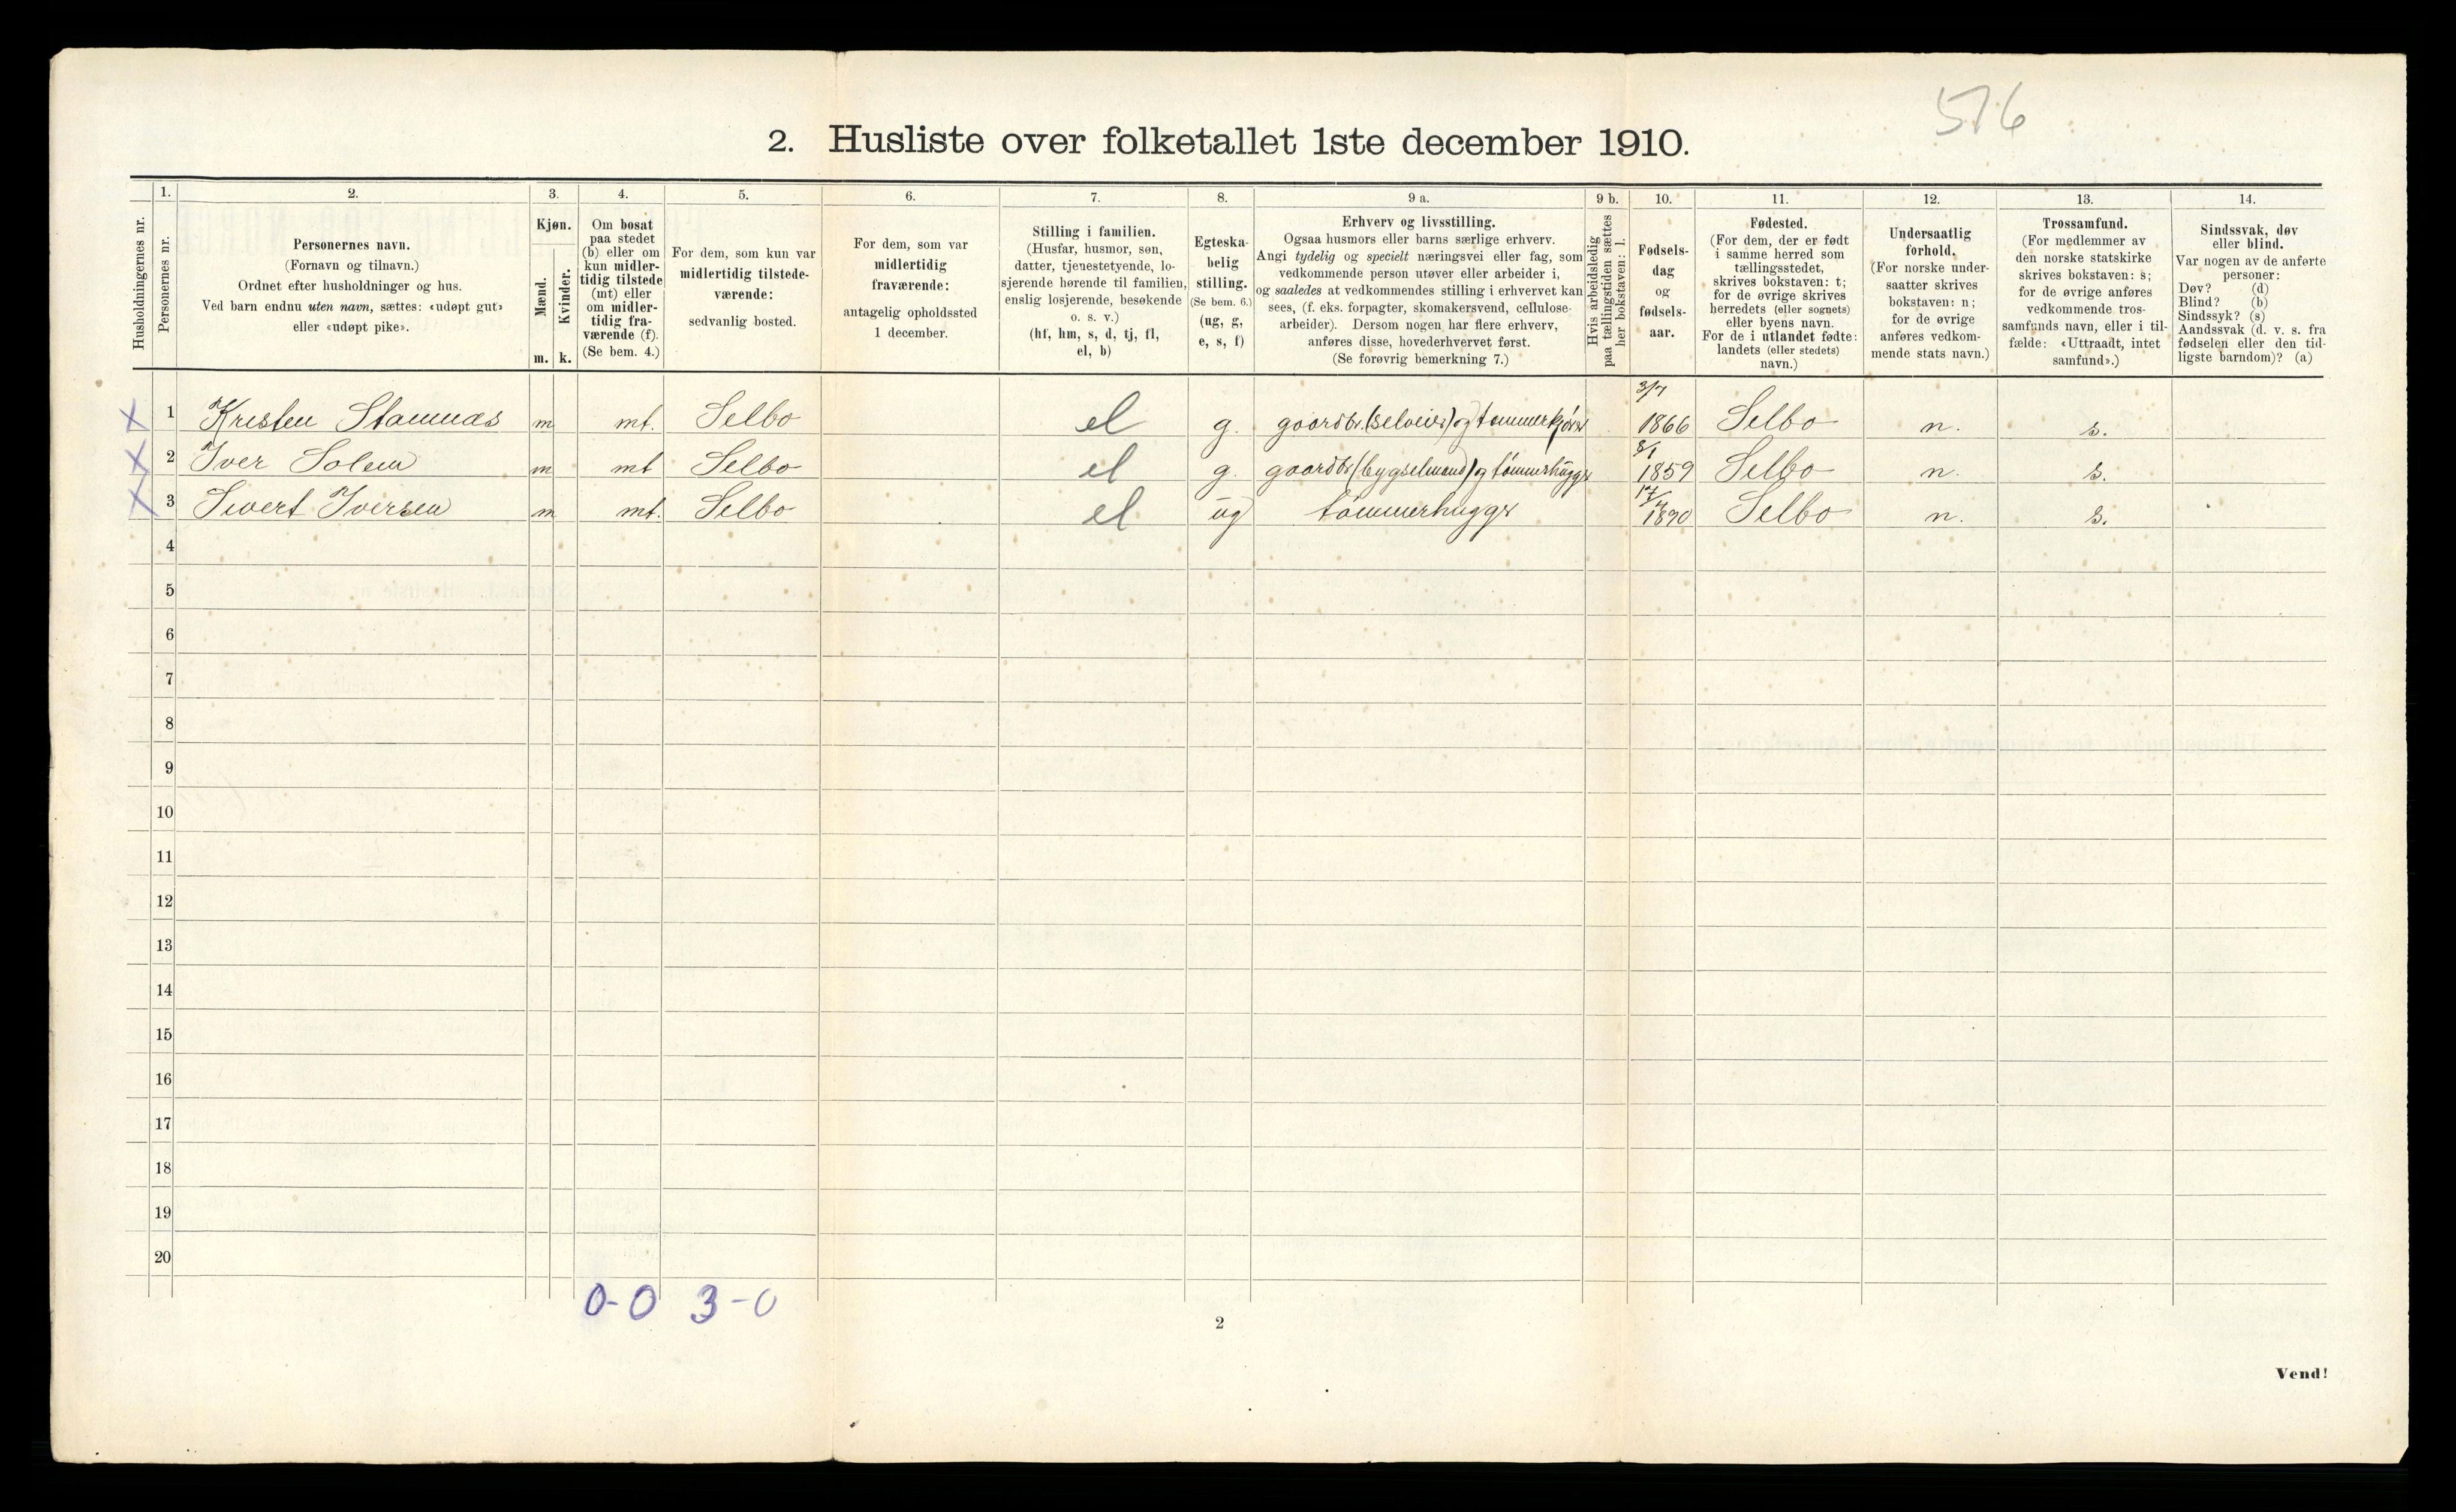 576
2. Husliste over folketallet 1ste december 1910.
Husholdningernes nr.
1.
Personernes nr.
2.
Personernes navn.
(Fornavn og tilnavn.)
Ordnet efter husholdninger og hus.
Ved barn endnu uten navn, sættes: «udøpt gut»
eller «udøpt pike».
3.
Kjøn.
Mænd.
Kvinder.
m. k.
4.
Om bosat
paa stedet
(b) eller om
kun midler-
tidig tilstede
(mt) eller
om midler-
tidig fra-
værende (f).
(Se bem. 4.)
5.
For dem, som kun var
midlertidig tilstede-
værende:
sedvanlig bosted.
6.
For dem, som var
midlertidig
fraværende:
antagelig opholdssted
1 december.
7.
Stilling i familien.
(Husfar, husmor, søn,
datter, tjenestetyende, lo-
sjerende hørende til familien,
enslig losjerende, besøkende
o. s. v.)
(hf, hm, s, d, tj, fl,
el, b)
8.
Egteska-
belig
stilling.
(Se bem. 6.)
(ug, g,
e, s, f)
9 a.
Erhverv og livsstilling.
Ogsaa husmors eller barns særlige erhverv.
Angi tydelig og specielt næringsvei eller fag, som
vedkommende person utøver eller arbeider i,
og saaledes at vedkommendes stilling i erhvervet kan
sees, (f. eks. forpagter, skomakersvend, cellulose-
arbeider). Dersom nogen har flere erhverv,
anføres disse, hovederhvervet først.
(Se forøvrig bemerkning 7.)
9 b.
Hvis arbeidsledig
paa tællingstiden sættes
her bokstaven: l.
10.
Fødsels-
dag
og
fødsels-
aar.
11.
Fødested.
(For dem, der er født
i samme herred som
tællingsstedet,
skrives bokstaven: t;
for de øvrige skrives
herredets (eller sognets)
eller byens navn.
For de i utlandet fødte:
landets (eller stedets)
navn.)
12.
Undersaatlig
forhold.
(For norske under-
saatter skrives
bokstaven: n;
for de øvrige
anføres vedkom-
mende stats navn.)
13.
Trossamfund.
(For medlemmer av
den norske statskirke
skrives bokstaven: s;
for de øvrige anføres
vedkommende tros-
samfunds navn, eller i til-
fælde: «Uttraadt, intet
samfund».)
14.
Sindssvak, døv
eller blind.
Var nogen av de anførte
personer:
Døv? (d)
Blind? (b)
Sindssyk? (s)
Aandssvak (d. v. s. fra
fødselen eller den tid-
ligste barndom)? (a)
X 1 Kristen Stamnæs m mt. Selbo el g. gaardbr. (selveier) og tømmerkjører 3/7 1866 Selbo n. s.
X 2 Iver Solem m mt Selbo el g. gaardbr (bygselmand) og tømmerhugger 8/1 1859 Selbo n. s.
X 3 Sivert Iversen m mt. Selbo el ug tømmerhugger 17/4 1890 Selbo n. s.
4
5
6
7
8
9
10
11
12
13
14
15
16
17
18
19
20
0-0 3-0
2
Vend!